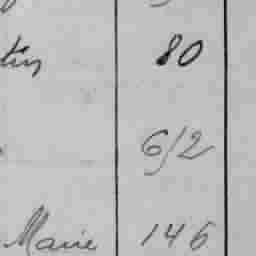 80
6/2
Marie 146